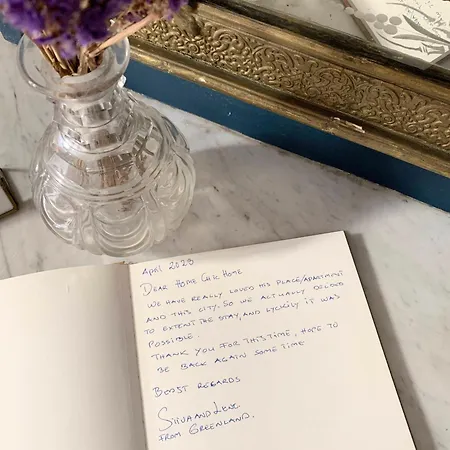 April 2023
DEAR HOME CHIC HOME
WE HAVE REALLY LOVED HIS PLACE/APARTMENT
AND THIS CITY. SO WE ACTUALLY DECIDED
TO EXTENT THE STAY, AND LYCKILY IT WAS
POSSIBLE.
THANK YOU FOR THIS TIME, HOPE TO
BE BACK AGAIN SOME TIME
BOOST REGARDS
AND
FROM GREENLAND.